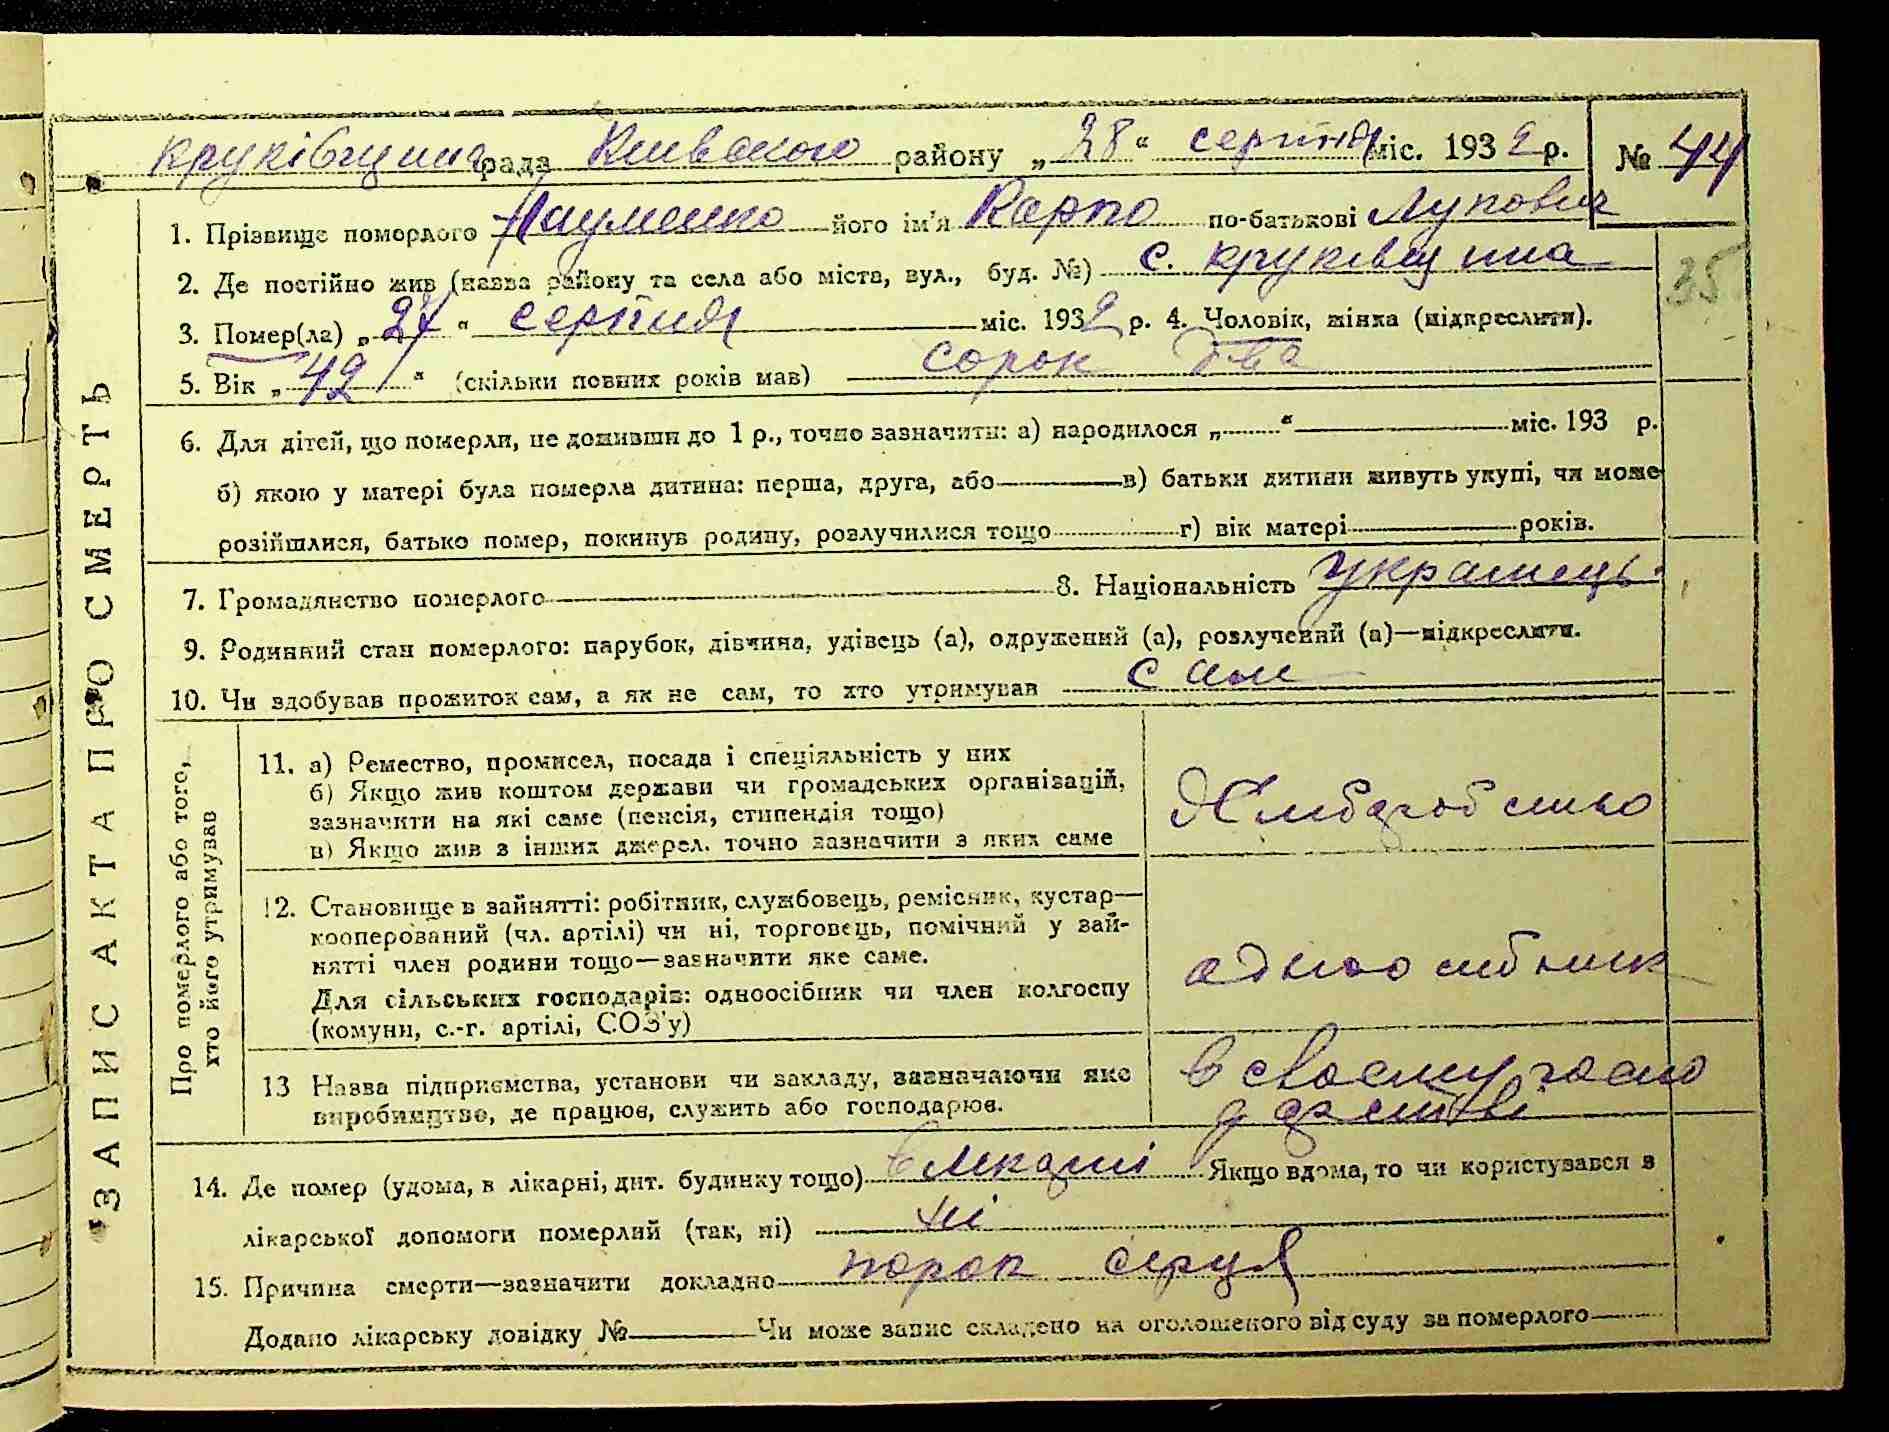 круківщина рада Київского району „28“ серпня міс. 1932 р. № 44
1. Прізвище померлого Науменко його ім’я Карпо по-батькові Лупович
35
2. Де постійно жив (назва району та села або міста, вул., буд. №) с. круківщина
3. Помер(ла) „27“ серпня міс. 1932 р. 4. Чоловік, жінка (підкреслити).
5. Вік „42“ (скільки повних років мав) сорок два
6. Для дітей, що померли, не доживши до 1 р., точно зазначити: а) народилося „ “ міс. 193 р.
б) якою у матері була померла дитина: перша, друга, або в) батьки дитини живуть укупі, чи може
розійшлися, батько помер, покинув родину, розлучилися тощо г) вік матері років.
7. Громадянство померлого 8. Національність Українець
9. Родинний стан померлого: парубок, дівчина, удівець (а), одружений (а), розлучений (а)—підкреслити.
10. Чи здобував прожиток сам, а як не сам, то хто утримував сам
ЗАПИС АКТА ПРО СМЕРТЬ
Про померлого або того,
хто його утримував
11. а) Ремество, промисел, посада і спеціяльність у них
б) Якщо жив коштом держави чи громадських організацій,
зазначити на які саме (пенсія, стипендія тощо)
в) Якщо жив з інших джерел, точно зазначити з яких саме
12. Становище в зайнятті: робітник, службовець, ремісник, кустар—
кооперований (чл. артілі) чи ні, торговець, помічний у зай-
нятті член родини тощо—зазначити яке саме.
Для сільських господарів: одноосібник чи член колгоспу
(комуни, с.-г. артілі, СОЗ’у)
одноосибник
13 Назва підприємства, установи чи закладу, зазначаючи яке
виробництво, де працює, служить або господарює.
в своему
14. Де помер (удома, в лікарні, дит. будинку тощо) Якщо вдома, то чи користувався з
лікарської допомоги померлий (так, ні) ні
15. Причина смерти—зазначити докладно порок серця
Додано лікарську довідку № Чи може запис складено на оголошеного від суду за померлого